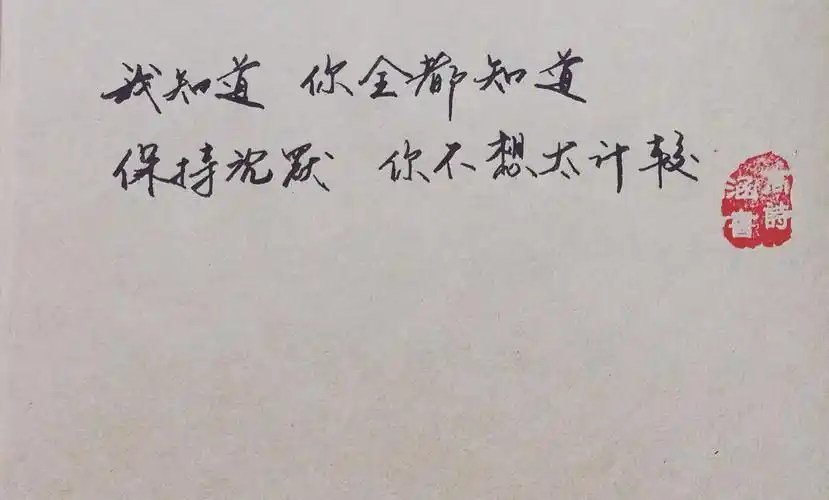 我知道 你全都知道
保持沉默 你不想太计较
诗
涵書